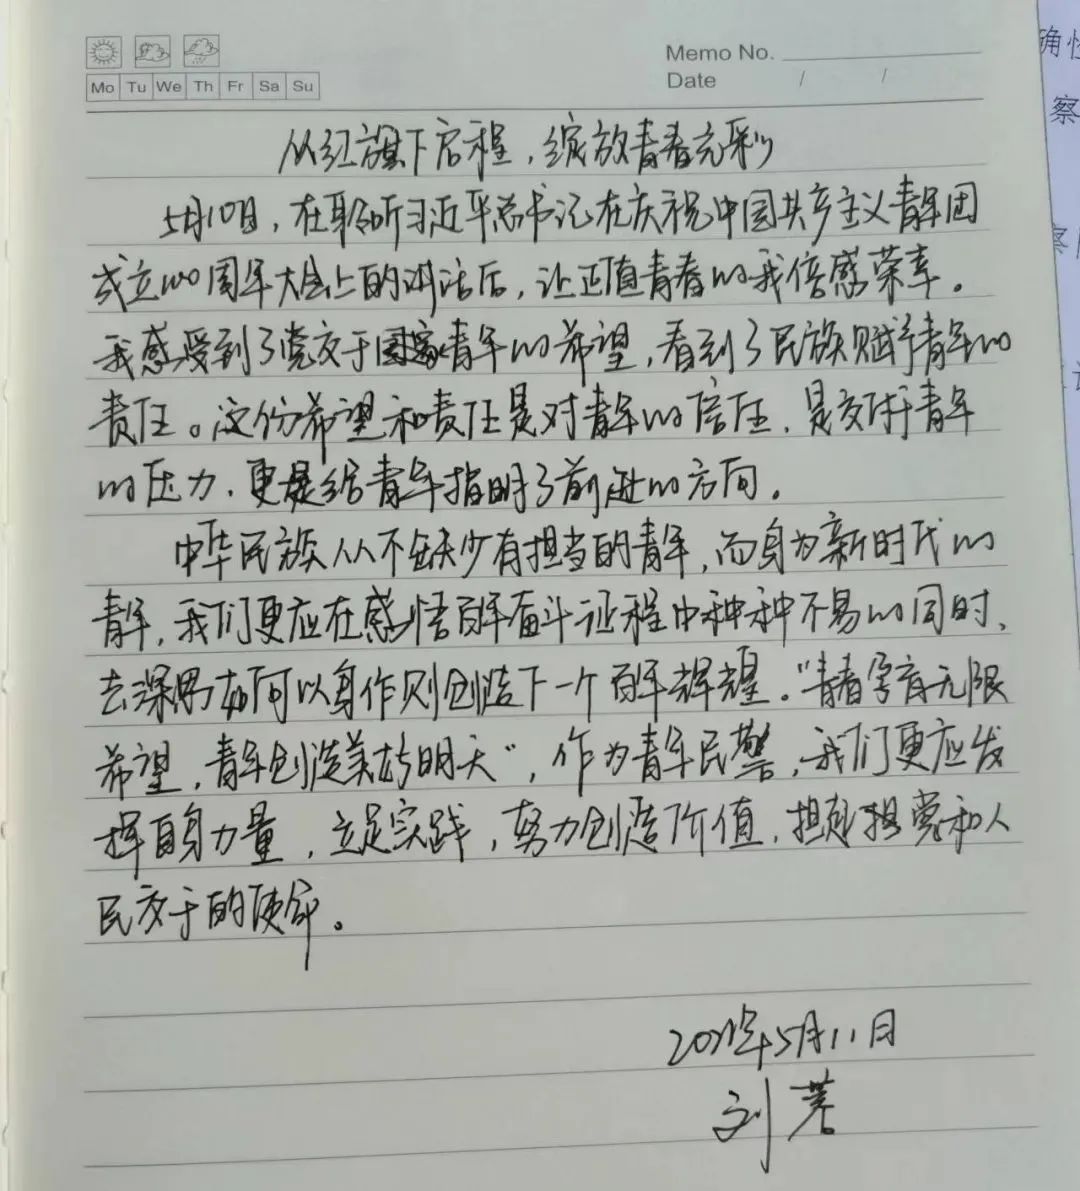 Memo No.
Mo Tu We Th Fr Sa Su
Date / /
从红旗下启程，绽放青春光彩
5月10日，在聆听习近平总书记在庆祝中国共产主义青年团
成立100周年大会上的讲话后，让正值青春的我倍感荣幸。
我感受到了党交于国家青年的希望，看到了民族赋予青年的
责任。这份希望和责任是对青年的信任，是交付于青年
的压力，更是给青年指明了前进的方向。
中华民族从不缺少有担当的青年，而身为新时代的
青年，我们更应在感悟百年奋斗征程中种种不易的同时，
去深思如何以身作则创造下一个百年辉煌。“青春孕育无限
希望，青年创造美好明天”，作为青年民警，我们更应发
挥自身力量，立足实践，努力创造价值，担起担党和人
民交于的使命。
2022年5月11日
刘
确性
察